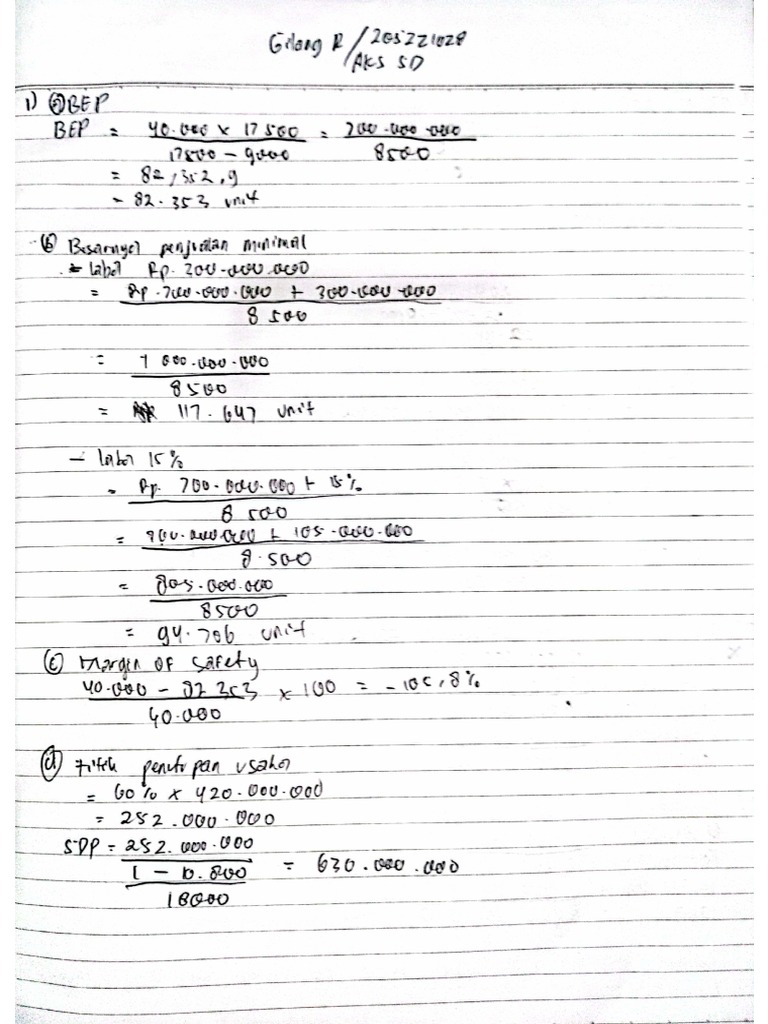 Gilang R / 205221028
AKS 5D
1) (a) BEP
BEP = 40.000 x 17 500 = 700.000.000
17500 - 9000 8500
= 82,352,9
= 82.353 unit
(b) Besarnya penjualan minimal
- laba Rp. 300.000.000
= Rp. 700.000.000 + 300.000.000
8 500
= 1 000.000.000
8500
= 117.647 unit
- laba 15%
= Rp. 700.000.000 + 15%
8 500
= 700.000.000 + 105.000.000
8.500
= 805.000.000
8500
= 94.706 unit
(c) Margin of safety
40.000 - 82 353 x 100 = -105,8%
40.000
(d) Titik penutupan usaha
= 60% x 420.000.000
= 252.000.000
SDP = 252.000.000
1 - 10.800 = 630.000.000
18000